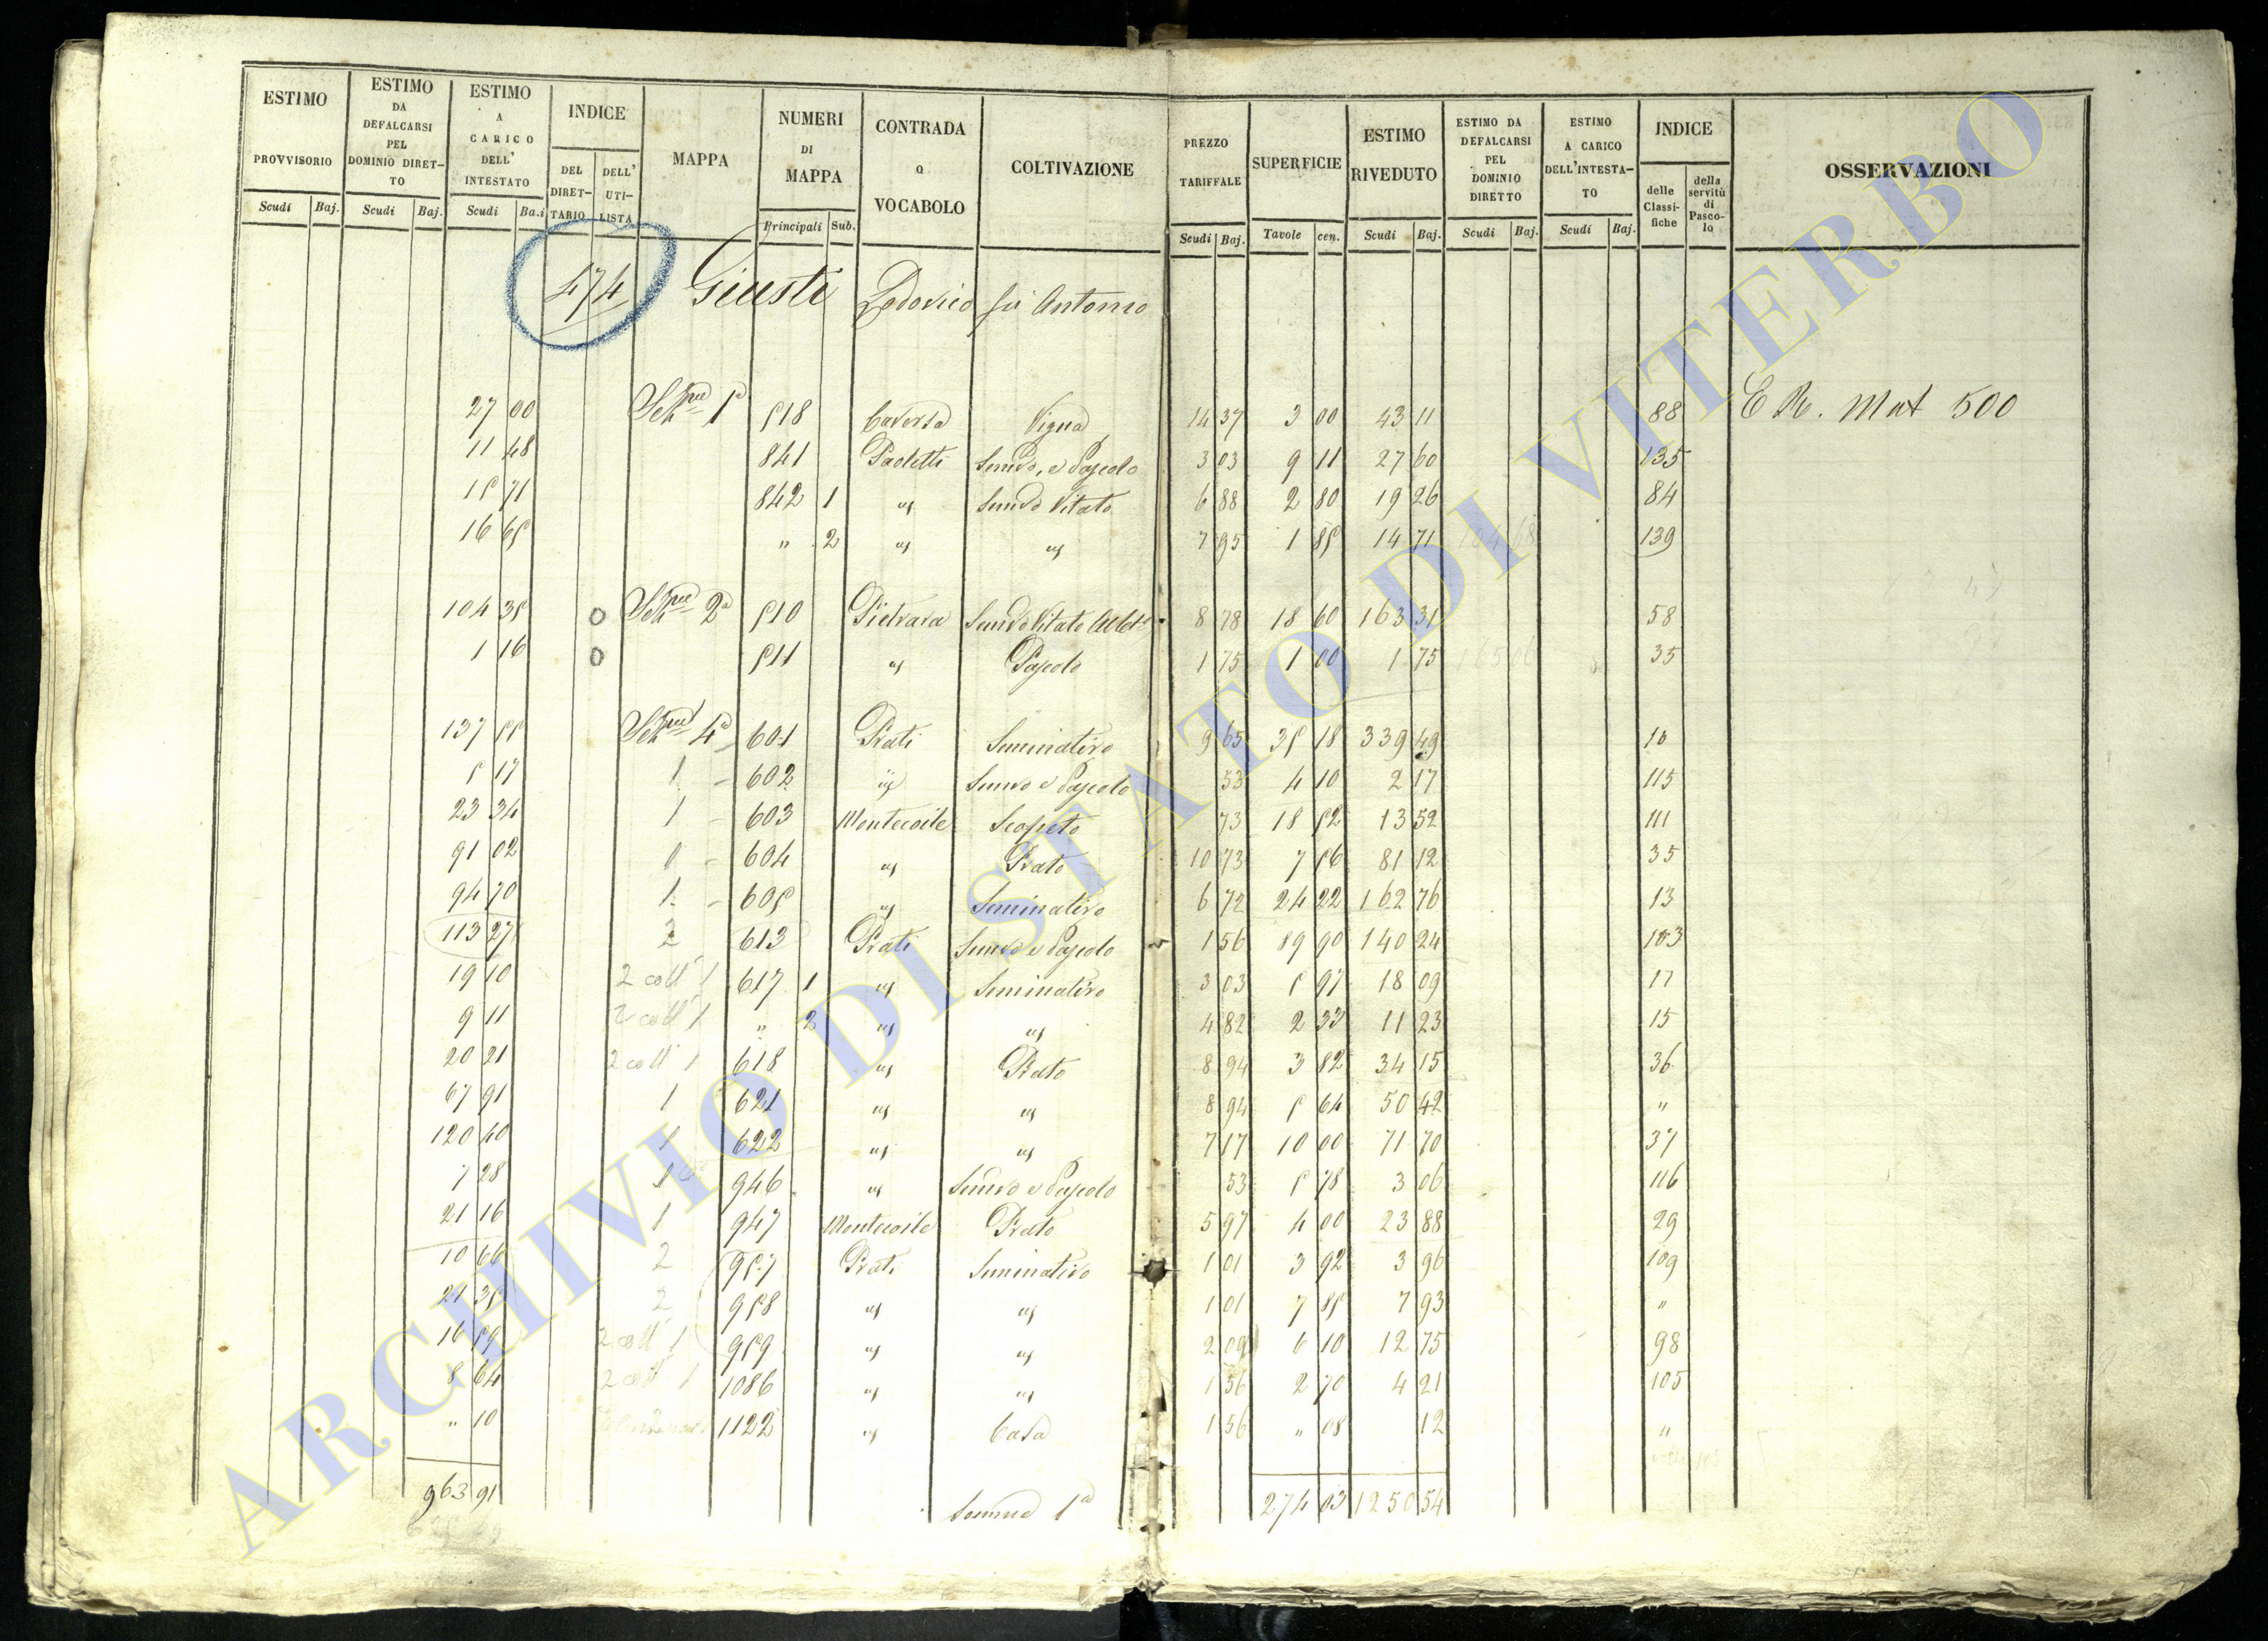 ESTIMO PROVVISORIO Scudi Baj.
ESTIMO DA DEFALCARSI PEL DOMINIO DIRET-TO Scudi Baj.
ESTIMO A CARICO DELL' INTESTATO Scudi Ba.i
INDICE DEL DIRET-TARIO DELL' UTI-LISTA
MAPPA
NUMERI DI MAPPA Principali Sub.
CONTRADA O VOCABOLO
COLTIVAZIONE
PREZZO TARIFFALE Scudi Baj.
SUPERFICIE Tavole cen.
ESTIMO RIVEDUTO Scudi Baj.
ESTIMO DA DEFALCARSI PEL DOMINIO DIRETTO Scudi Baj.
ESTIMO A CARICO DELL'INTESTA-TO Scudi Baj.
INDICE delle Classi-fiche della servitù di Pasco-lo
OSSERVAZIONI
474 Giusti Lodovico fù Antonio
27 00 Sezne 1a 518 Caversa Vigna 14 37 3 00 43 11 88 E R. Mat 500
11 48 841 Paoletti Semvo, e Pascolo 3 03 9 11 27 60 135
15 71 842 1 " Semvo Vitato 6 88 2 80 19 26 84
16 65 " 2 " " 7 95 1 85 14 71 104 68 139
104 35 0 Sezne 2a 510 Pietrara Semvo Vitato 8 78 18 60 163 31 58
1 16 0 511 " Pascolo 1 75 1 00 1 75 165 06 35
137 55 Sezne 4a 601 Prati Seminativo 9 65 35 18 339 49 10
5 17 1 602 " Semvo e Pascolo 53 4 10 2 17 115
23 34 1 603 Montecoile Scopeto 73 18 52 13 52 111
91 02 1 604 " Prato 10 73 7 56 81 12 35
94 70 1 605 " Seminativo 6 72 24 22 162 76 13
113 27 2 613 Prati Semvo e Pascolo 1 56 89 90 140 24 103
19 10 2 colt 1 617 1 " Seminativo 3 03 5 97 18 09 17
9 11 2 colt 1 " 2 " " 4 82 2 33 11 23 15
20 21 2 colt 1 618 " Prato 8 94 3 82 34 15 36
67 91 1 621 " " 8 94 5 64 50 42 "
120 40 1 622 " " 7 17 10 00 71 70 37
7 28 1 946 " Semvo e Pascolo 53 5 78 3 06 116
21 16 1 947 Montecoile Prato 5 97 4 00 23 88 29
10 66 2 957 Prati Seminativo 1 01 3 92 3 96 109
21 35 2 958 " " 1 01 7 85 7 93 "
16 59 2 colt 1 959 " " 2 09 6 10 12 75 98
8 64 2 colt 1 1086 " " 1 56 2 70 4 21 105
" 10 1122 " Casa 1 56 " 08 12 "
963 91 Somma 1a 274 03 1250 54
ARCHIVIO DI STATO DI VITERBO